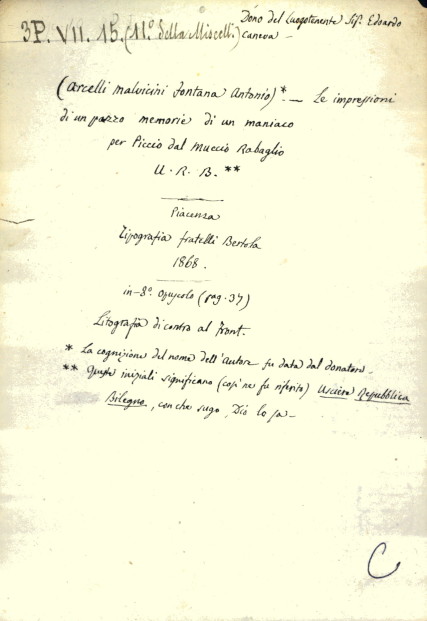 3P. VII. 15. (11.º della Miscell.)
Dono del Luogotenente Sig. Edoardo
Caneva -
(Arcelli Malvicini Fontana Antonio)* - Le impressioni
di un pazzo memorie di un maniaco
per Piccio dal Muccio Rabaglio
U. R. B. **
Piacenza
Tipografia fratelli Bertola
1868.
in-8.º Opuscolo (pag. 37)
Litografia di contra al front.
* La cognizione del nome dell'autore fu data dal donatore.
** Queste iniziali significano (così ne fu riferito) Usciere Repubblica
Bilegno, con che sugo, Dio lo sa -
C